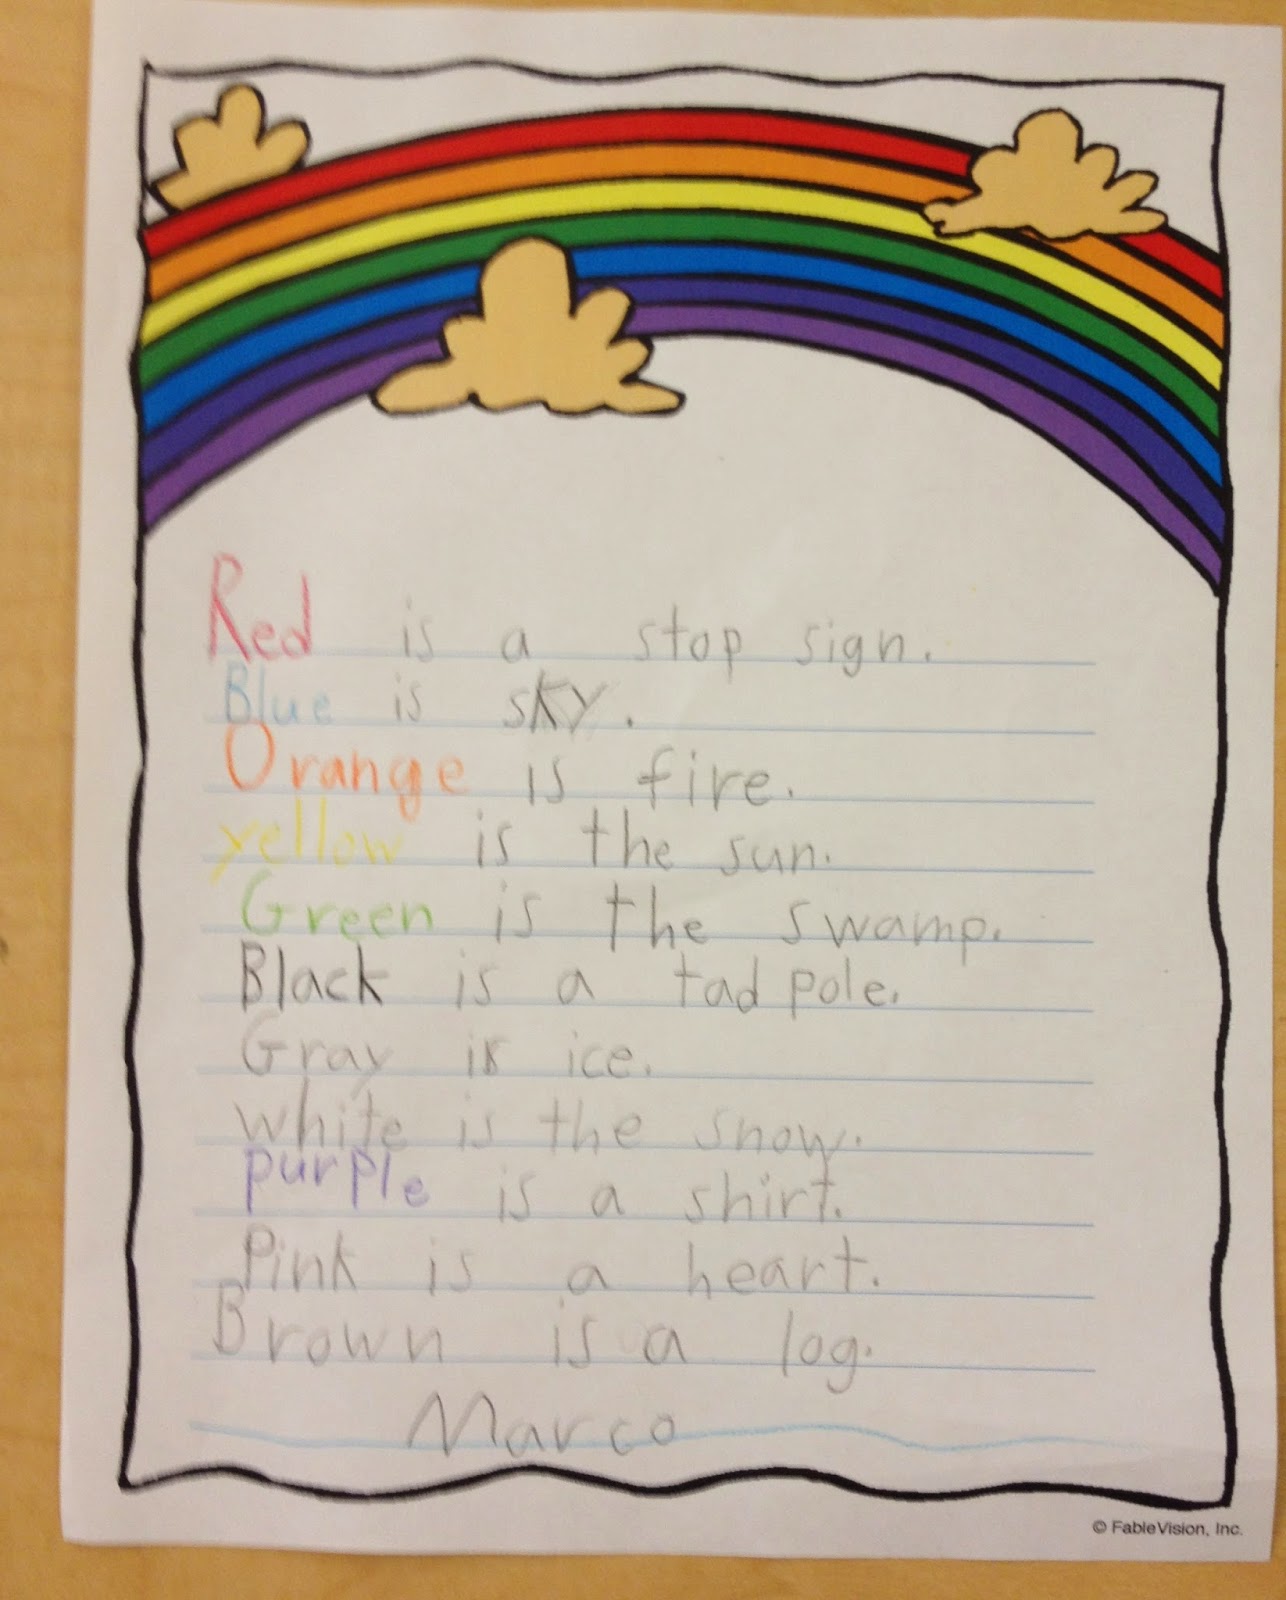 Red is a stop sign.
Blue is sky.
Orange is fire.
yellow is the sun.
Green is the swamp.
Black is a tadpole.
Gray is ice.
white is the snow.
purple is a shirt.
Pink is a heart.
Brown is a log.
Marco
© FableVision, Inc.